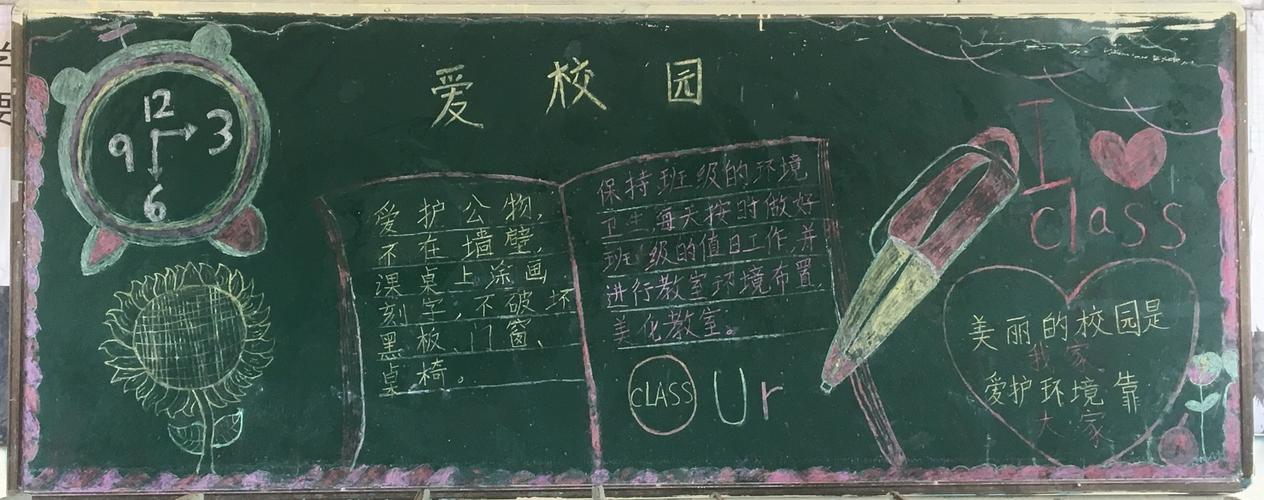 爱校园
12
9 3
6
爱护公物,
不在墙壁,
课桌上涂画
刻字,不破坏
黑板、门窗、
桌椅。
保持班级的环境
卫生,每天按时做好
班级的值日工作,并
进行教室环境布置,
美化教室。
CLASS Ur
I
class
美丽的校园是
我家
爱护环境靠
大家